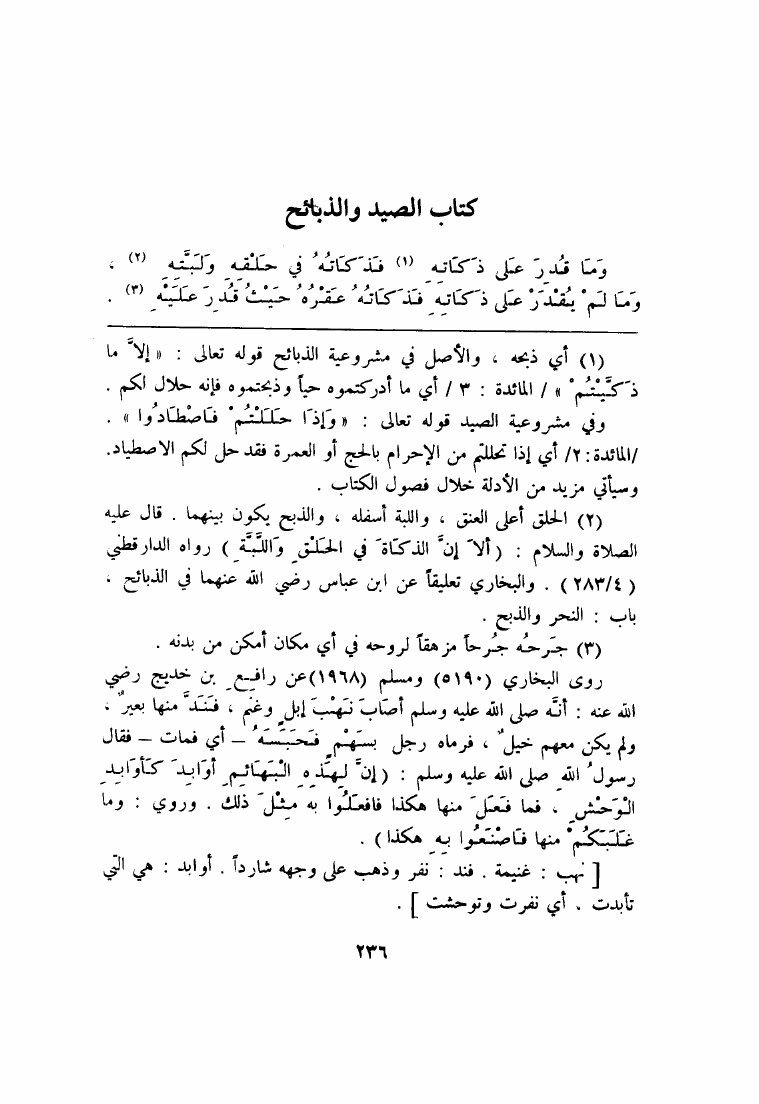 كتاب الصيد والذبائح
وَمَا قُدِرَ عَلى ذَكَاتِهِ (١) فَذَكَاتُهُ في حَلْقِهِ وَلَبَّتِهِ (٢) ،
وَمَا لَمْ يُقْدَرْ عَلى ذَكَاتِهِ فَذَكَاتُهُ عَقْرُهُ حَيْثُ قُدِرَ عَلَيْهِ (٣) .
(١) أي ذبحه ، والأصل في مشروعية الذبائح قوله تعالى : « إلاَّ ما
ذَكَّيْتُمْ » / المائدة : ٣ / أي ما أدركتموه حياً وذبحتموه فإنه حلال لكم .
وفي مشروعية الصيد قوله تعالى : « وَإذَا حَلَلْتُمْ فَاصْطَادُوا » .
/المائدة : ٢/ أي إذا تحللتم من الإحرام بالحج أو العمرة فقد حل لكم الاصطياد.
وسيأتي مزيد من الأدلة خلال فصول الكتاب .
(٢) الحلق أعلى العنق ، واللبة أسفله ، والذبح يكون بينهما . قال عليه
الصلاة والسلام : ( ألاَ إنَّ الذكَاةَ في الحَلْقِ وَاللَّبَّةِ ) رواه الدارقطني
( ٢٨٣/٤ ) . والبخاري تعليقاً عن ابن عباس رضي الله عنهما في الذبائح ،
باب : النحر والذبح .
(٣) جَرحُه جُرحاً مزهقاً لروحه في أي مكان أمكن من بدنه .
روى البخاري (٥١٩٠) ومسلم (١٩٦٨)عن رافِعِ بن خديج رضي
الله عنه : أنَّه صلى الله عليه وسلم أصَابَ نَهْبَ إبلٍ وغنم ، فَنَدَّ منها بعيرٌ ،
ولم يكن معهم خيلٌ ، فرماه رجل بسَهْمٍ فَحَبَسَهُ – أي فمات – فقال
رسولُ اللهِ صلى الله عليه وسلم : ( إنَّ لِهَذِهِ الْبَهَائِمِ أوَابِدَ كَأوَابِدِ
الْوَحْشِ ، فما فَعَلَ منها هكذا فافعَلُوا به مِثْلَ ذلك . وروي : وما
غَلَبَكُمْ منها فَاصْنَعُوا بِهِ هكذا ) .
[ نهب : غنيمة . فند : نفر وذهب على وجهه شارداً . أوابد : هي التي
تأبدت ، أي نفرت وتوحشت ] .
٢٣٦